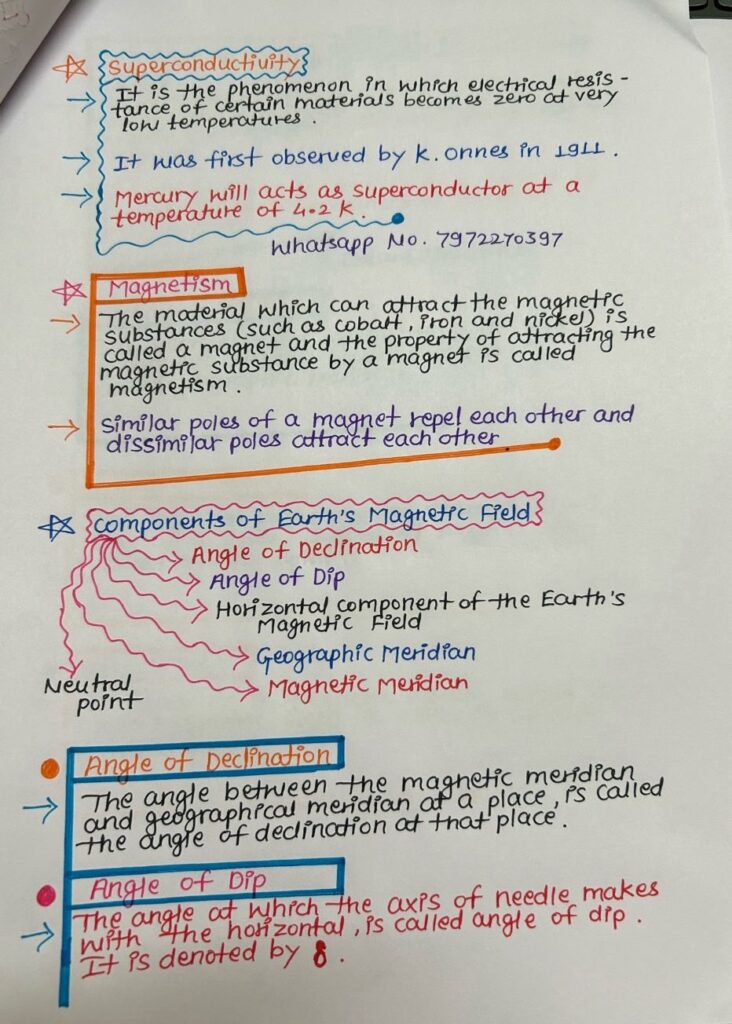 Superconductivity
It is the phenomenon in which electrical resis-
tance of certain materials becomes zero at very
low temperatures.
It was first observed by K. Onnes in 1911.
Mercury will acts as superconductor at a
temperature of 4.2 K.
Whatsapp No. 7972270397
Magnetism
The material which can attract the magnetic
substances (such as cobalt, iron and nickel) is
called a magnet and the property of attracting the
magnetic substance by a magnet is called
magnetism.
Similar poles of a magnet repel each other and
dissimilar poles attract each other
Components of Earth's Magnetic Field
Angle of Declination
Angle of Dip
Horizontal component of the Earth's
Magnetic Field
Geographic Meridian
Magnetic Meridian
Neutral
point
Angle of Declination
The angle between the magnetic meridian
and geographical meridian at a place, is called
the angle of declination at that place.
Angle of Dip
The angle at which the axis of needle makes
with the horizontal, is called angle of dip.
It is denoted by δ.